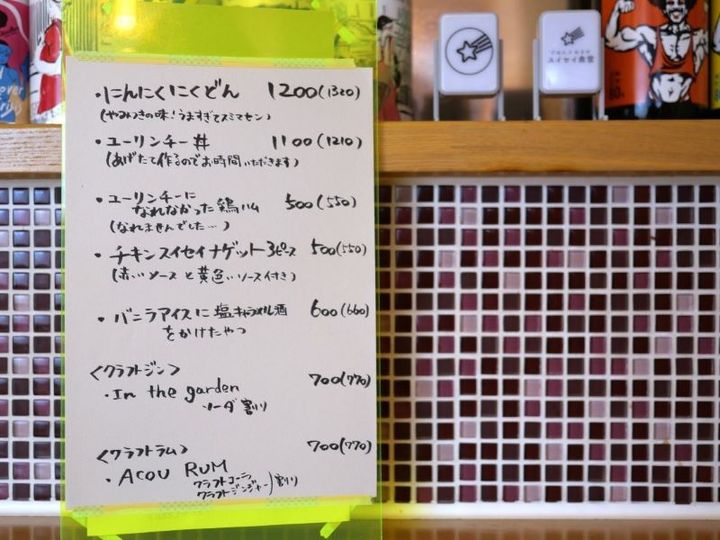 ・にんにくにくどん 1200(1320)
(やみつきの味!うますぎてスミマセン)
・ユーリンチー丼 1100(1210)
(あげたて作るのでお時間いただきます)
・ユーリンチーに
なれなかった鶏ハム 500(550)
(なれませんでした…)
・チキンスイセイナゲット3ピース 500(550)
(赤いソースと黄色いソース付き)
・バニラアイスに塩キャラメル酒 600(660)
をかけたやつ
<クラフトジン> 700(770)
・In the garden
ソーダ割り
<クラフトラム> 700(770)
・ACOU RUM
クラフトコーラ
クラフトジンジャー)割り
スイセイ食堂